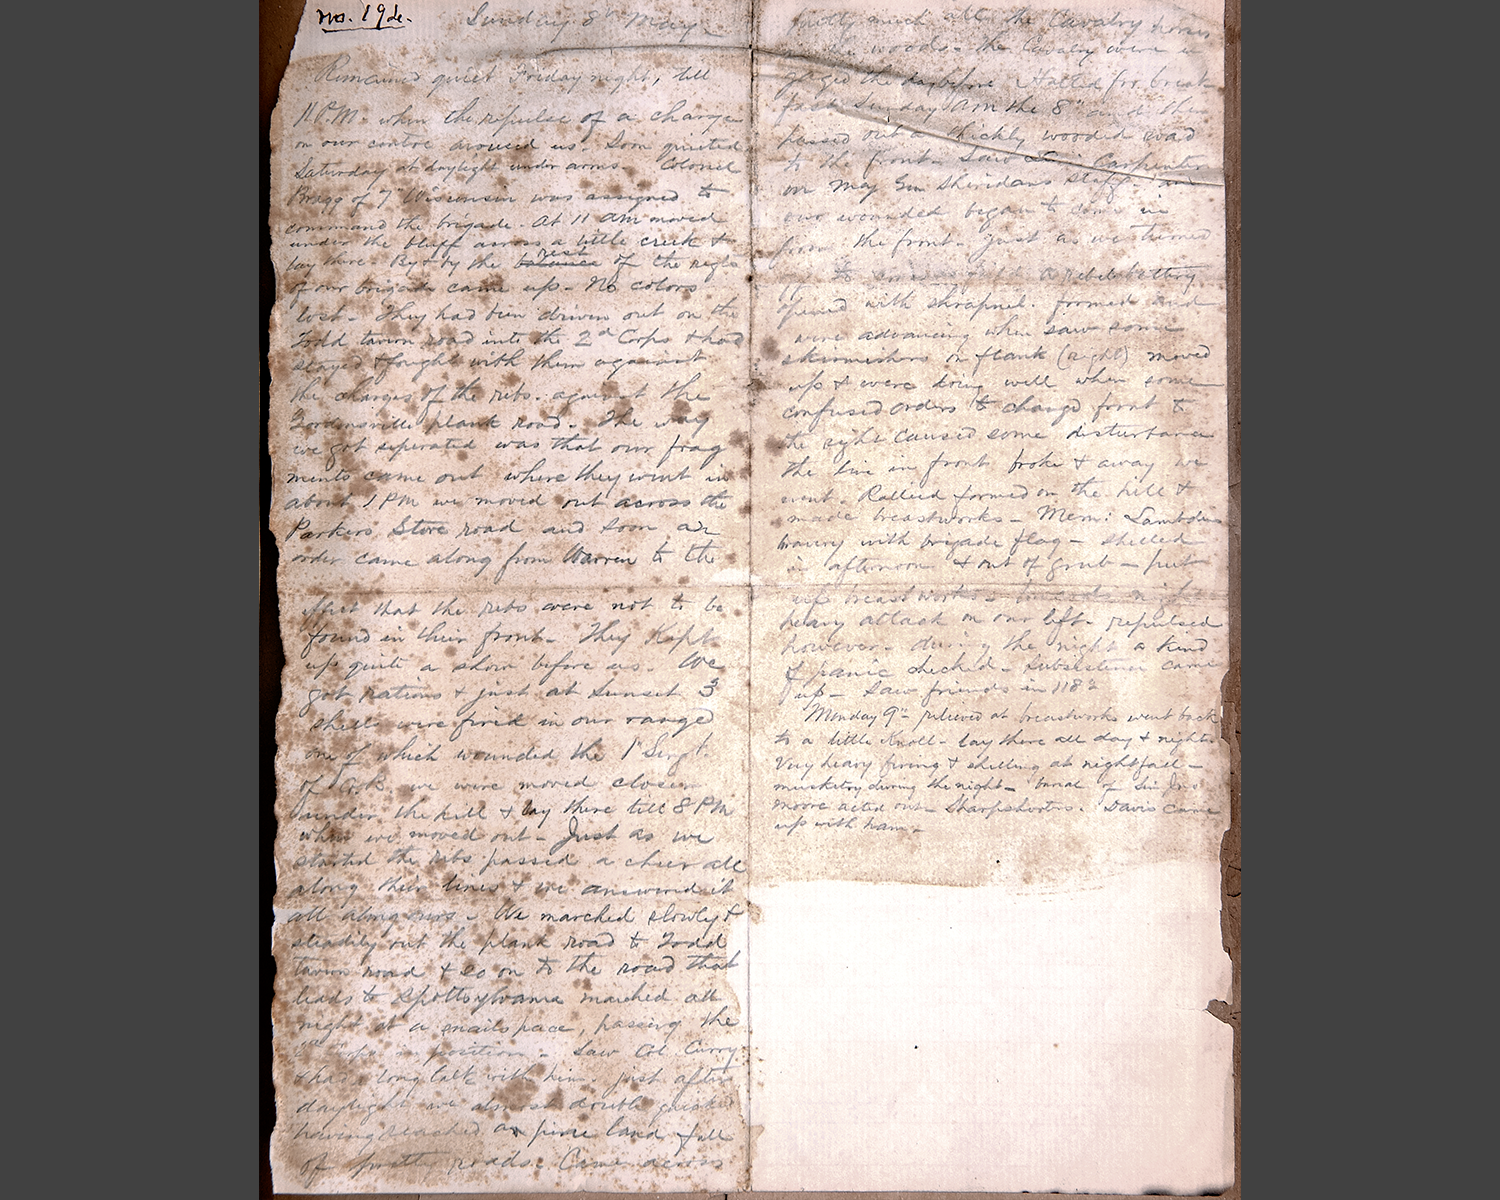 no. 19 de.
Sunday 8th May
Remained quiet Friday night, till
11 P.M. when the repulse of a charge
on our centre aroused us. Soon quieted
Saturday at daylight under arms. Colonel
Bragg of 7 Wisconsin was assigned to
command the brigade. At 11 am moved
under the bluff across a little creek &
lay there. By & by the balance rest of the regts
of our brigade came up - No colors
lost. They had been driven out on the
Todd tavern road into the 2d Corps & had
stayed & fought with them against
the charges of the rebs. against the
Gordonsville plank road. The way
we got seperated was that our frag
ments came out where they went in
about 1 PM we moved out across the
Parkers Store road and soon an
order came along from Warren to the
effect that the rebs were not to be
found in their front - They kept
up quite a show before us. We
got rations & just at sunset 3
shells were fired in our range
one of which wounded the 1st Sergt.
of Co K we were moved closer
under the hill & lay there till 8 PM
when we moved out - Just as we
started the rebs passed a cheer all
along their lines & we answered it
all along ours - We marched slowly &
steadily out the plank road to Todd
tavern road & so on to the road that
leads to Spottsylvania marched all
night at a snails pace, passing the
Corps in position - Saw Col. Curry
& had a long talk with him. just after
daylight we almost double quicked
having reached a pine land full
of roads. Came across
pretty much all the Cavalry horses
in the woods - the Cavalry were en
gaged the day before Halted for break
fast Sunday AM the 8th and then
passed out a thickly wooded road
to the front - Saw Carpenter
on Maj Gen Sheridans staff - and
our wounded began to come in
from the front - Just as we turned
to a rebel battery
opened with shrapnel. formed and
were advancing when saw some
skirmishers on flank (right) moved
up & were doing well when some
confused orders to change front to
the right caused some disturbance
the line in front broke & away we
went. Rallied formed on the hill &
made breastworks - Mem: Lambdins
bravery with brigade flag - shelled
in afternoon & out of grub - put
up breastworks towards night
heavy attack on our left - repulsed
however - during the night a kind
of panic checked - Subsistence came
up - Saw friends in 118th
Monday 9th relieved at breastworks went back
to a little knoll - lay there all day & night
Very heavy firing & shelling at nightfall -
musketry during the night - burial of Sir Jno
Moore acted out - Sharpshooters. Davis came
up with ham -